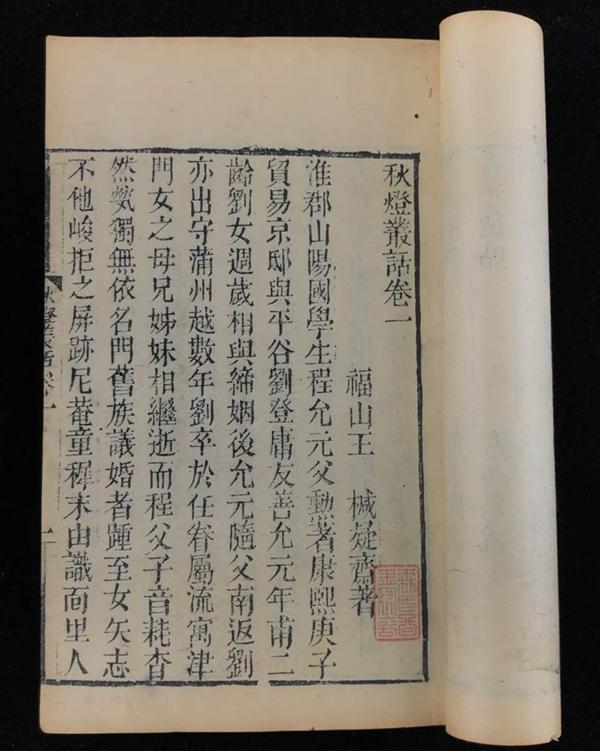 秋燈叢話卷一
福山王　椷凝齋著
淮郡山陽國學生程允元父勲著康熙庚子
貿易京邸與平谷劉登庸友善允元年甫二
齡劉女週歲相與締姻後允元隨父南返劉
亦出守蒲州越數年劉卒於任眷屬流寓津
門女之母兄姊妹相繼逝而程父子音耗杳
然煢獨無依名門舊族議婚者踵至女矢志
不他峻拒之屏跡尼菴童穉末由識面里人
秋燈叢話卷一
一